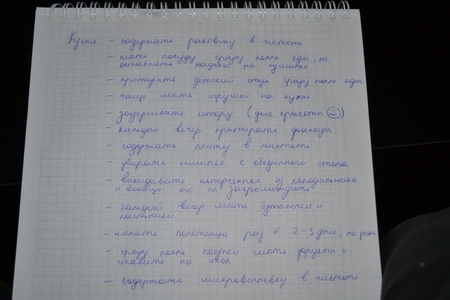 Кухня: - содержать раковину в чистоте
- мыть посуду сразу после еды, не
оставлять надолго на сушилке
- протирать детский стул сразу после еды
- чаще мыть игрушки на кухне
- задергивать штору (для красоты ☺)
- каждый вечер протирать
- содержать плиту в чистоте
- убирать лишнее с обеденного стола
- выкидывать испорченное из холодильника
и вообще его не загромождать
- каждый вечер мыть бутылочки и
- менять полотенца раз в 2-3 дня, не реже
- сразу после покупки мыть фрукты и
ставить на стол
- содержать микроволновку в чистоте